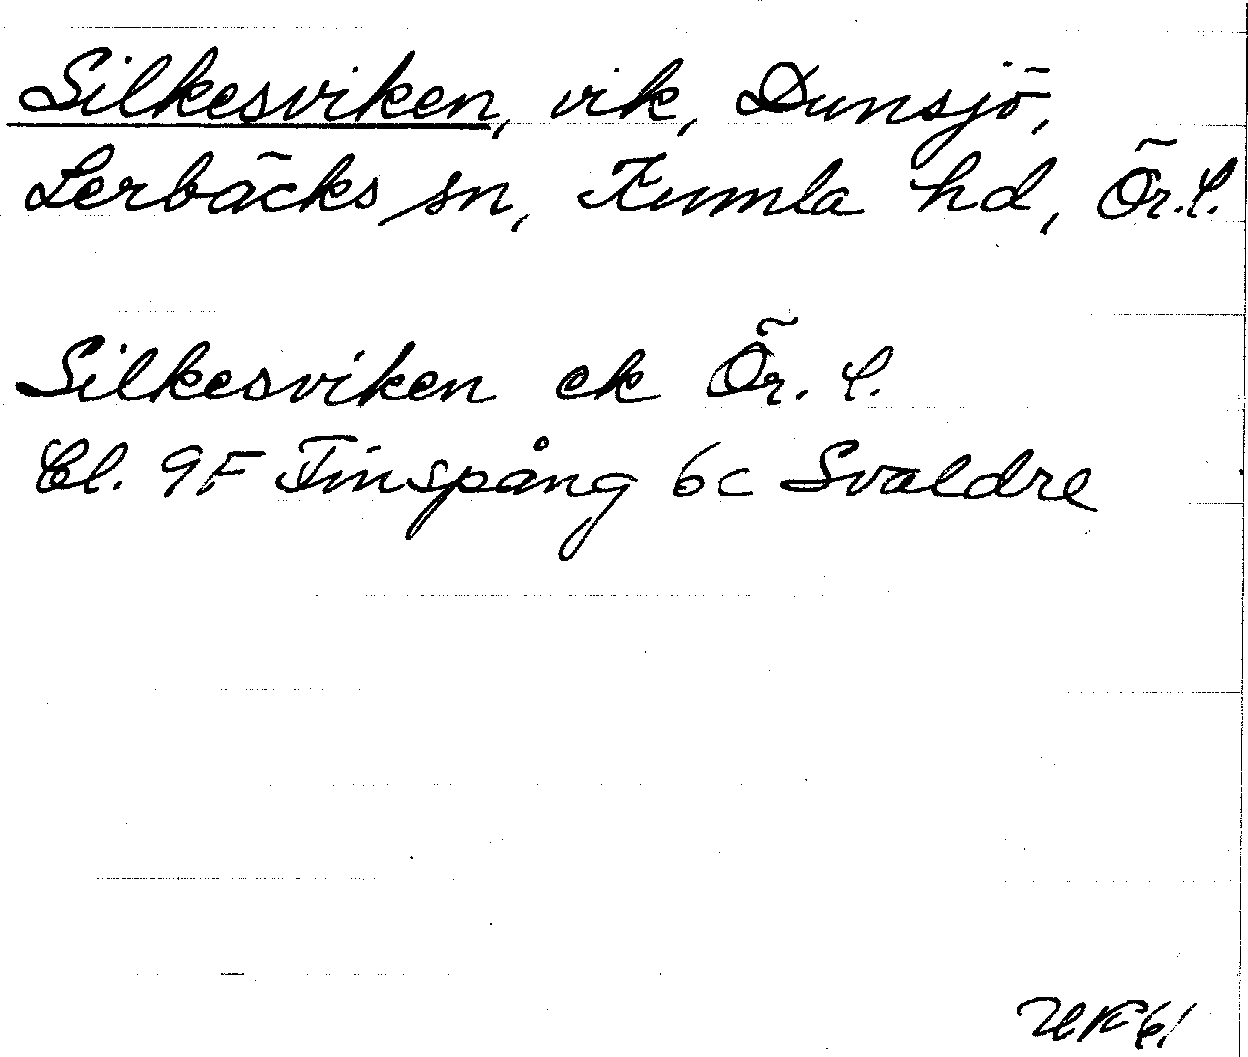 Silkesviken, vik, Dunsjö,
Lerbäcks sn, Kumla hd, Ör.l.
Silkesviken ek Ör. l.
Bl. 9F Finspång 6c Svaldre